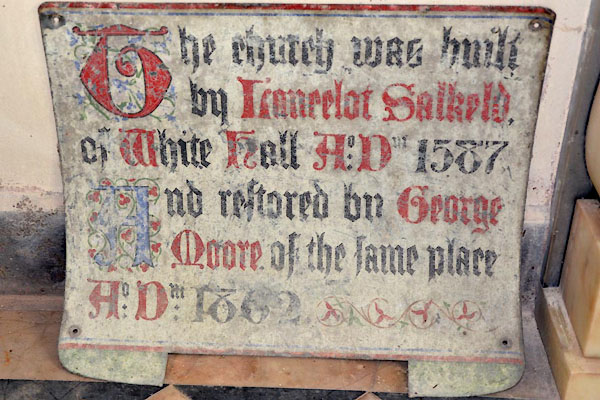 The church was built
by Lancelot Salkeld,
of White Hall Aº. Dⁿⁱ 1587
And restored by George
Moore. of the same place
Aº Dⁿⁱ: 1862.